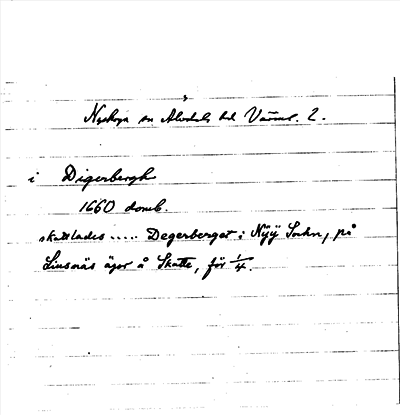 Nyskoga sn Älvdals hd Värml. 2.
i Digerbergh
1660 domb.
skattlades ..... Degerberget i Nÿÿ Sochn, på
Liusnäs ägor å Skatte, för 1/4.